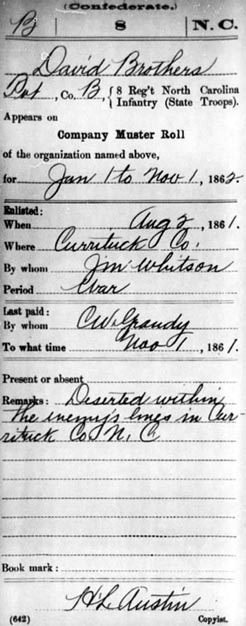 (Confederate.)
B | 8 | N.C.
David Brothers
Pvt, Co. B, { 8 Reg't North Carolina Infantry (State Troops).
Appears on
Company Muster Roll
of the organization named above,
for Jan 1 to Nov 1, 1862.
Enlisted:
When Aug 2, 1861.
Where Currituck Co.
By whom Jm Whitson
Period War
Last paid:
By whom C W Grandy
To what time Nov 1, 1861.
Present or absent
Remarks: Deserted within
the enemy's lines in Cur-
rituck Co. N. C.
Book mark:
H L Austin
(642) Copyist.